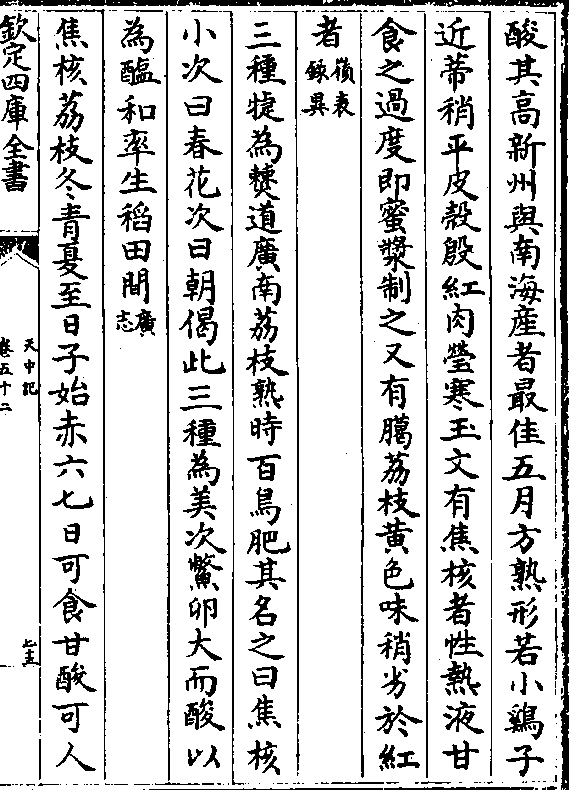 酸其高新州與南海産者最佳五月方熟形若小鷄子
近蒂稍平皮殼殷紅肉瑩寒玉文有焦核者性熱液甘
食之過度即蜜漿制之又有臈荔枝黄色味稍劣於紅
者嶺表録異
三種㨗為僰道廣南荔枝熟時百鳥肥其名之曰焦核
小次曰春花次曰朝偈此三種為美次鱉卵大而酸以
為醢和率生稻田間廣志
焦核荔枝冬青夏至日子始赤六七日可食甘酸可人
欽定四庫全書
天中記
卷五十二